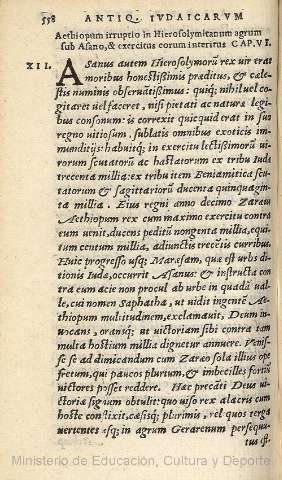 558 ANTIQ. IVDAICARVM
Aethiopum irruptio in Hierosolymitanum agrum
sub Asano, & exercitus eorum interitus CAP. VI.
XII. ASanus autem Hierosolymorũ rex uir erat
moribus honestissimis præditus, & cæle-
stis numinis obseruãtissimus: quip; nihil uel co-
gitaret uel faceret, nisi pietati ac naturæ legi-
bus consonum: is correxit quicquid erat in suo
regno uitiosum, sublatis omnibus exoticis im-
munditijs: habuitq; in exercitu lectissimorũ ui-
rorum scutatorũ ac hastatorum ex tribu Iuda
trecenta millia: ex tribu item Beniamitica scu-
tatorum & sagittariorũ ducenta quinquagin-
ta millia. Eius regni anno decimo Zaræus
Aethiopum rex cum maximo exercitu contra
eum uenit, ducens peditũ nongenta millia, equi-
tum centum millia, adiunctis trecẽtis curribus.
Huic progresso usq; Maræsam, quæ est urbs di-
tionis Iudæ, occurrit Asanus: & instructa con
tra eum acie non procul ab urbe in quadã ual-
le, cui nomen Saphatha, ut uidit ingentẽ Ae-
thiopum multitudinem, exclamauit, Deum in-
uocans, oransq; ut uictoriam sibi contra tam
multa hostium millia dignetur annuere. Venis-
se se ad dimicandum cum Zaræo sola illius ope
fretum, qui paucos plurium, & imbecilles fortiũ
uictores posset reddere. Hæc precãti Deus ui-
ctoriæ signum obtulit: quo uiso rex alacris cum
hoste conflixit, cæsisq; plurimis, reliquos terga
uertentes usq; in agrum Gerarenum persequu-
tus est.
Ministerio de Educación, Cultura y Deporte